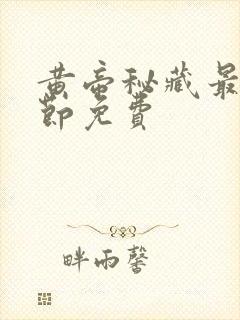 黄帝秘藏最
节免费
畔雨馨